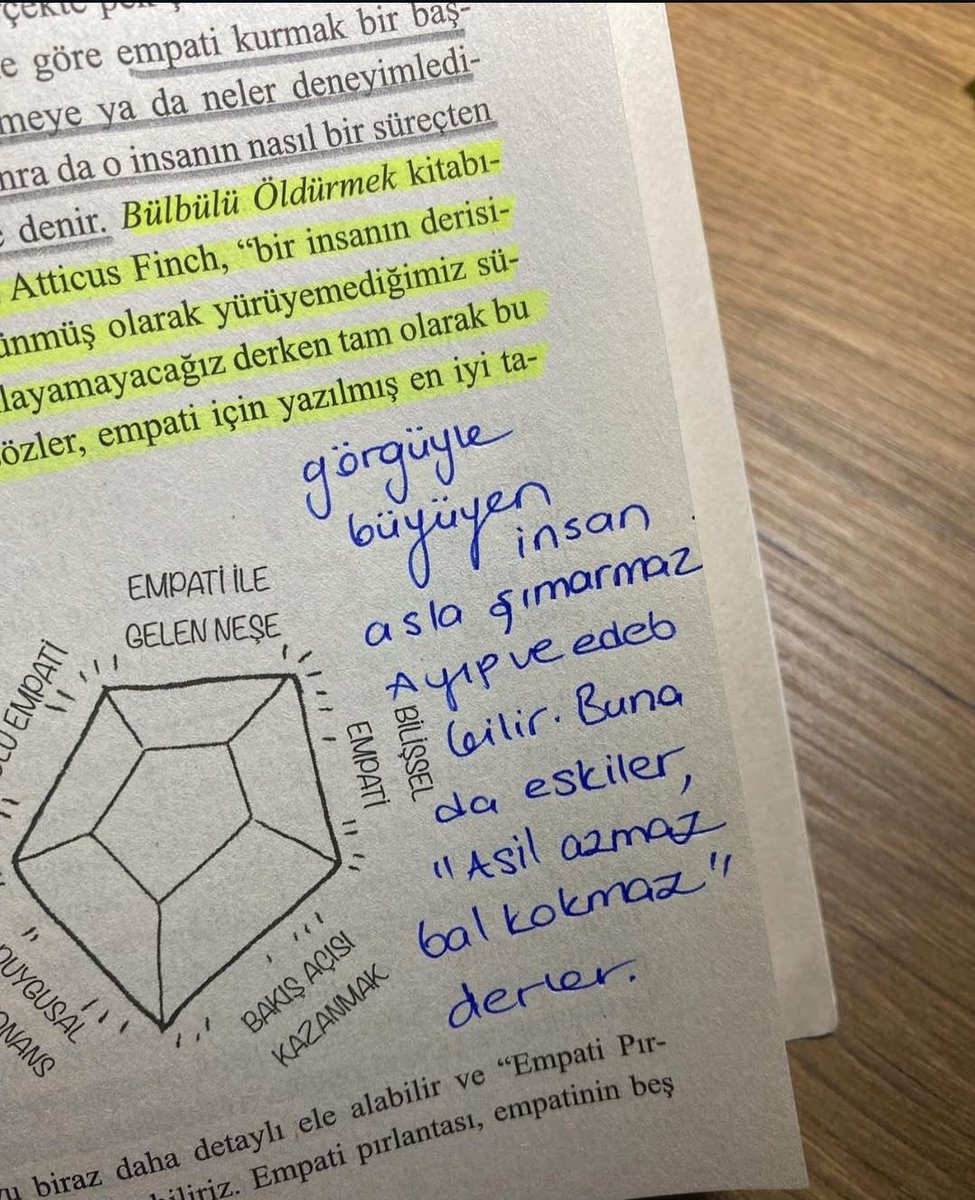 e göre empati kurmak bir baş-
meye ya da neler deneyimledi-
nra da o insanın nasıl bir süreçten
denir. Bülbülü Öldürmek kitabı-
Atticus Finch, “bir insanın derisi-
ünmüş olarak yürüyemediğimiz sü-
layamayacağız derken tam olarak bu
özler, empati için yazılmış en iyi ta-
görgüyle
büyüyen
insan
asla şımarmaz
Ayıp ve edeb
bilir. Buna
da eskiler,
"Asil azmaz
bal kokmaz"
derler.
EMPATİ İLE
GELEN NEŞE
LU EMPATİ
BİLİŞSEL
EMPATİ
BAKIŞ AÇISI
KAZANMAK
DUYGUSAL
ONANS
u biraz daha detaylı ele alabilir ve “Empati Pır-
biliriz. Empati pırlantası, empatinin beş